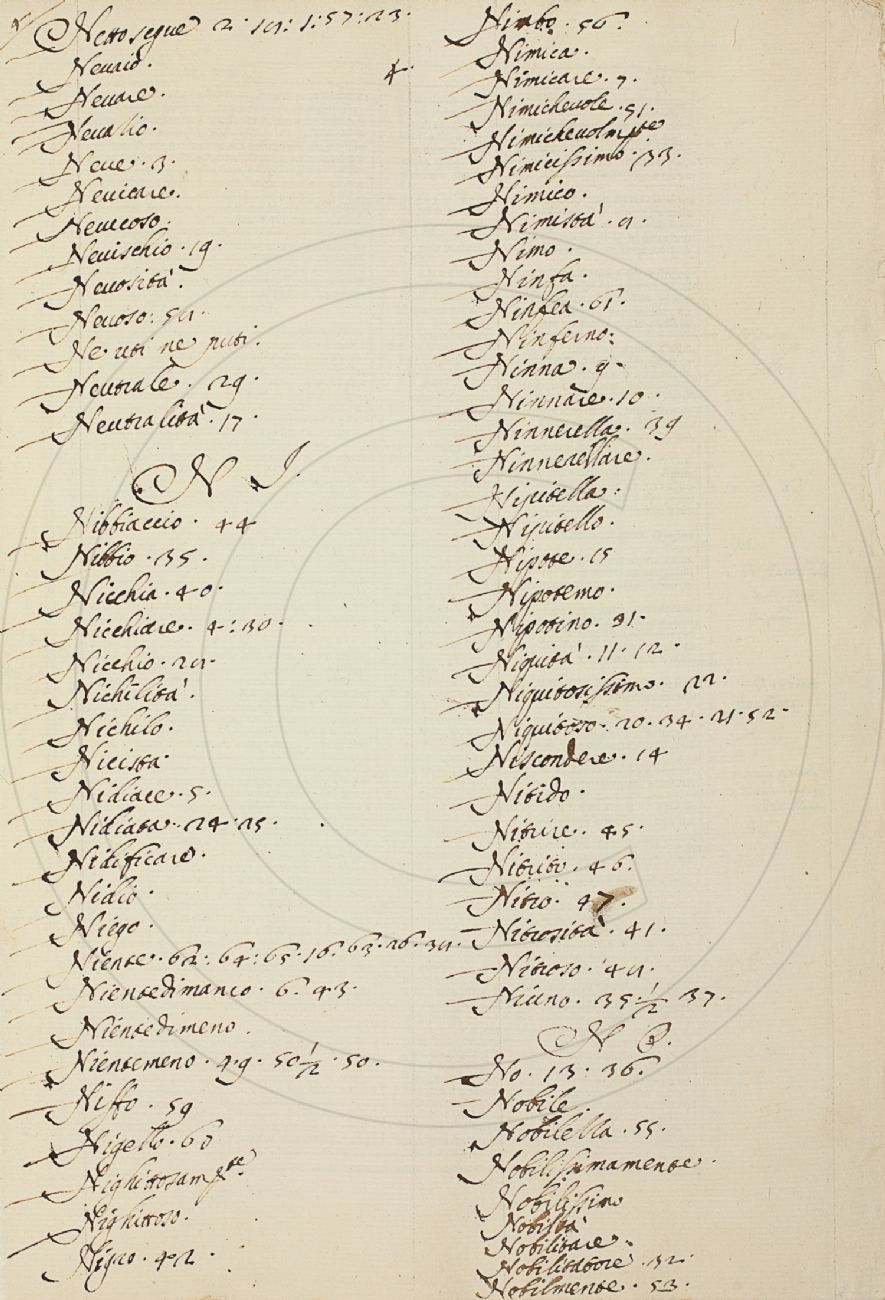 Netto segue 2. 19: 1: 57: 23.
4.
Nevaio.
Nevare.
Nevatio.
Neve. 3.
Nevicare.
Nevicoso.
Nevischio. 19.
Nevosità.
Nevoso: 54.
Ne uti ne puti.
Neutrale. 29.
Neutralità. 17.
N I.
Nibbiaccio. 44
Nibbio. 35.
Nicchia. 40.
Nicchiare. 4: 30.
Nicchio. 24.
Nichilità.
Nichilo.
Nicista
Nidiace. 5.
Nidiata. 24. 25.
Nidificare.
Nidio.
Niego.
Niente. 62: 64: 65. 16. 63. 26. 34.
Nientedimanco. 6. 43.
Nientedimeno.
Nientemeno. 4. 9. 50 1/2. 50.
Niffo. 59
Nigello. 60
Nighittosam.te
Nighittoso.
Nigro. 42.
Nimbo. 56.
Nimica.
Nimicare. 7.
Nimichevole. 51.
Nimichevolm.te
Nimicissimo. 33.
Nimico.
Nimistà. 9.
Nimo.
Ninfa.
Ninfea. 61.
Ninferno.
Ninna. 9.
Ninnare. 10.
Ninnerella. 39
Ninnerellare.
Nipitella.
Nipitello.
Nipote. 15
Nipotemo.
Nipotino. 31.
Niquità. 11. 12.
Niquitosissimo. 22.
Niquitoso. 20. 34. 21. 52.
Niscondere. 14
Nitido.
Nitrire. 45.
Nitrito. 46.
Nitro. 47.
Nitrosità. 41.
Nitroso. 49.
Niuno. 35. 1/2 37.
N O.
No. 13. 36.
Nobile
Nobilella. 55.
Nobilissimamente.
Nobilissimo
Nobiltà
Nobilitare.
Nobilitatore. 32.
Nobilmente. 53.